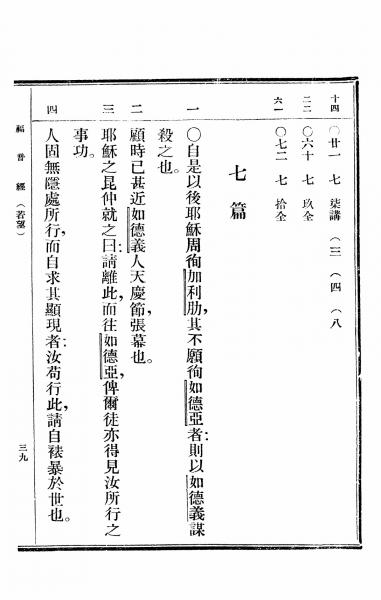 十四 〇廿一 七 柒講（三（四（八
二二 〇六十 七 玖全
六一 〇七二 七 拾全
七篇
一 〇自是以後耶穌周徇加利肋，其不願徇如德亞者；則以如德義謀
殺之也。
二 顧時已甚近如德義人天慶節，張幕也。
三 耶穌之昆仲就之曰：請離此，而往如德亞，俾爾徒亦得見汝所行之
事功。
四 人固無隱處所行，而自求其顯現者；汝苟行此，請自襮暴於世也。
福音經（若望） 三九